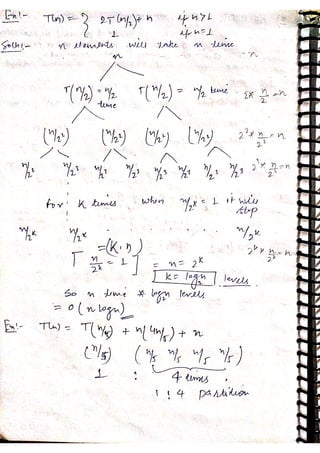 Ex:- T(n) = { 2T(n/2) + n if n>1
1 if n=1
Soln:- n elements will take n time
n - n
T(n/2) = n/2 time T(n/2) = n/2 time 2* n/2 = n
(n/2²) (n/2²) (n/2²) (n/2²) 2² * n/2² = n
n/2³ n/2³ n/2³ n/2³ n/2³ n/2³ n/2³ n/2³ 2³ * n/2³ = n
for k times when n/2^k = 1 it will stop
n/2^k n/2^k . . . . . n/2^k
= (k·n) 2^k * n/2^k = n
[ n/2^k = 1 ] = n = 2^k
k = log n levels
So n time * log n levels
= O(n log n)
Ex:- T(n) = T(n/5) + n(4n/5) + n
(n/5) (n/5 n/5 n/5 n/5)
1 : 4 times .
1 : 4 partition